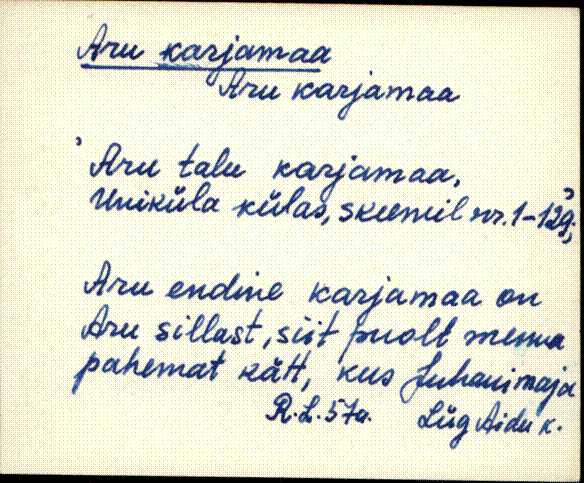 Aru karjamaa
Aru karjamaa
' Aru talu karjamaa,
Uniküla külas, skeemil nr. 1-129;
Aru endine karjamaa on
Aru sillast, siit puolt menna
pahemat kätt, kus Juhani maja
R. L. 57a. Lüg Aidu k.